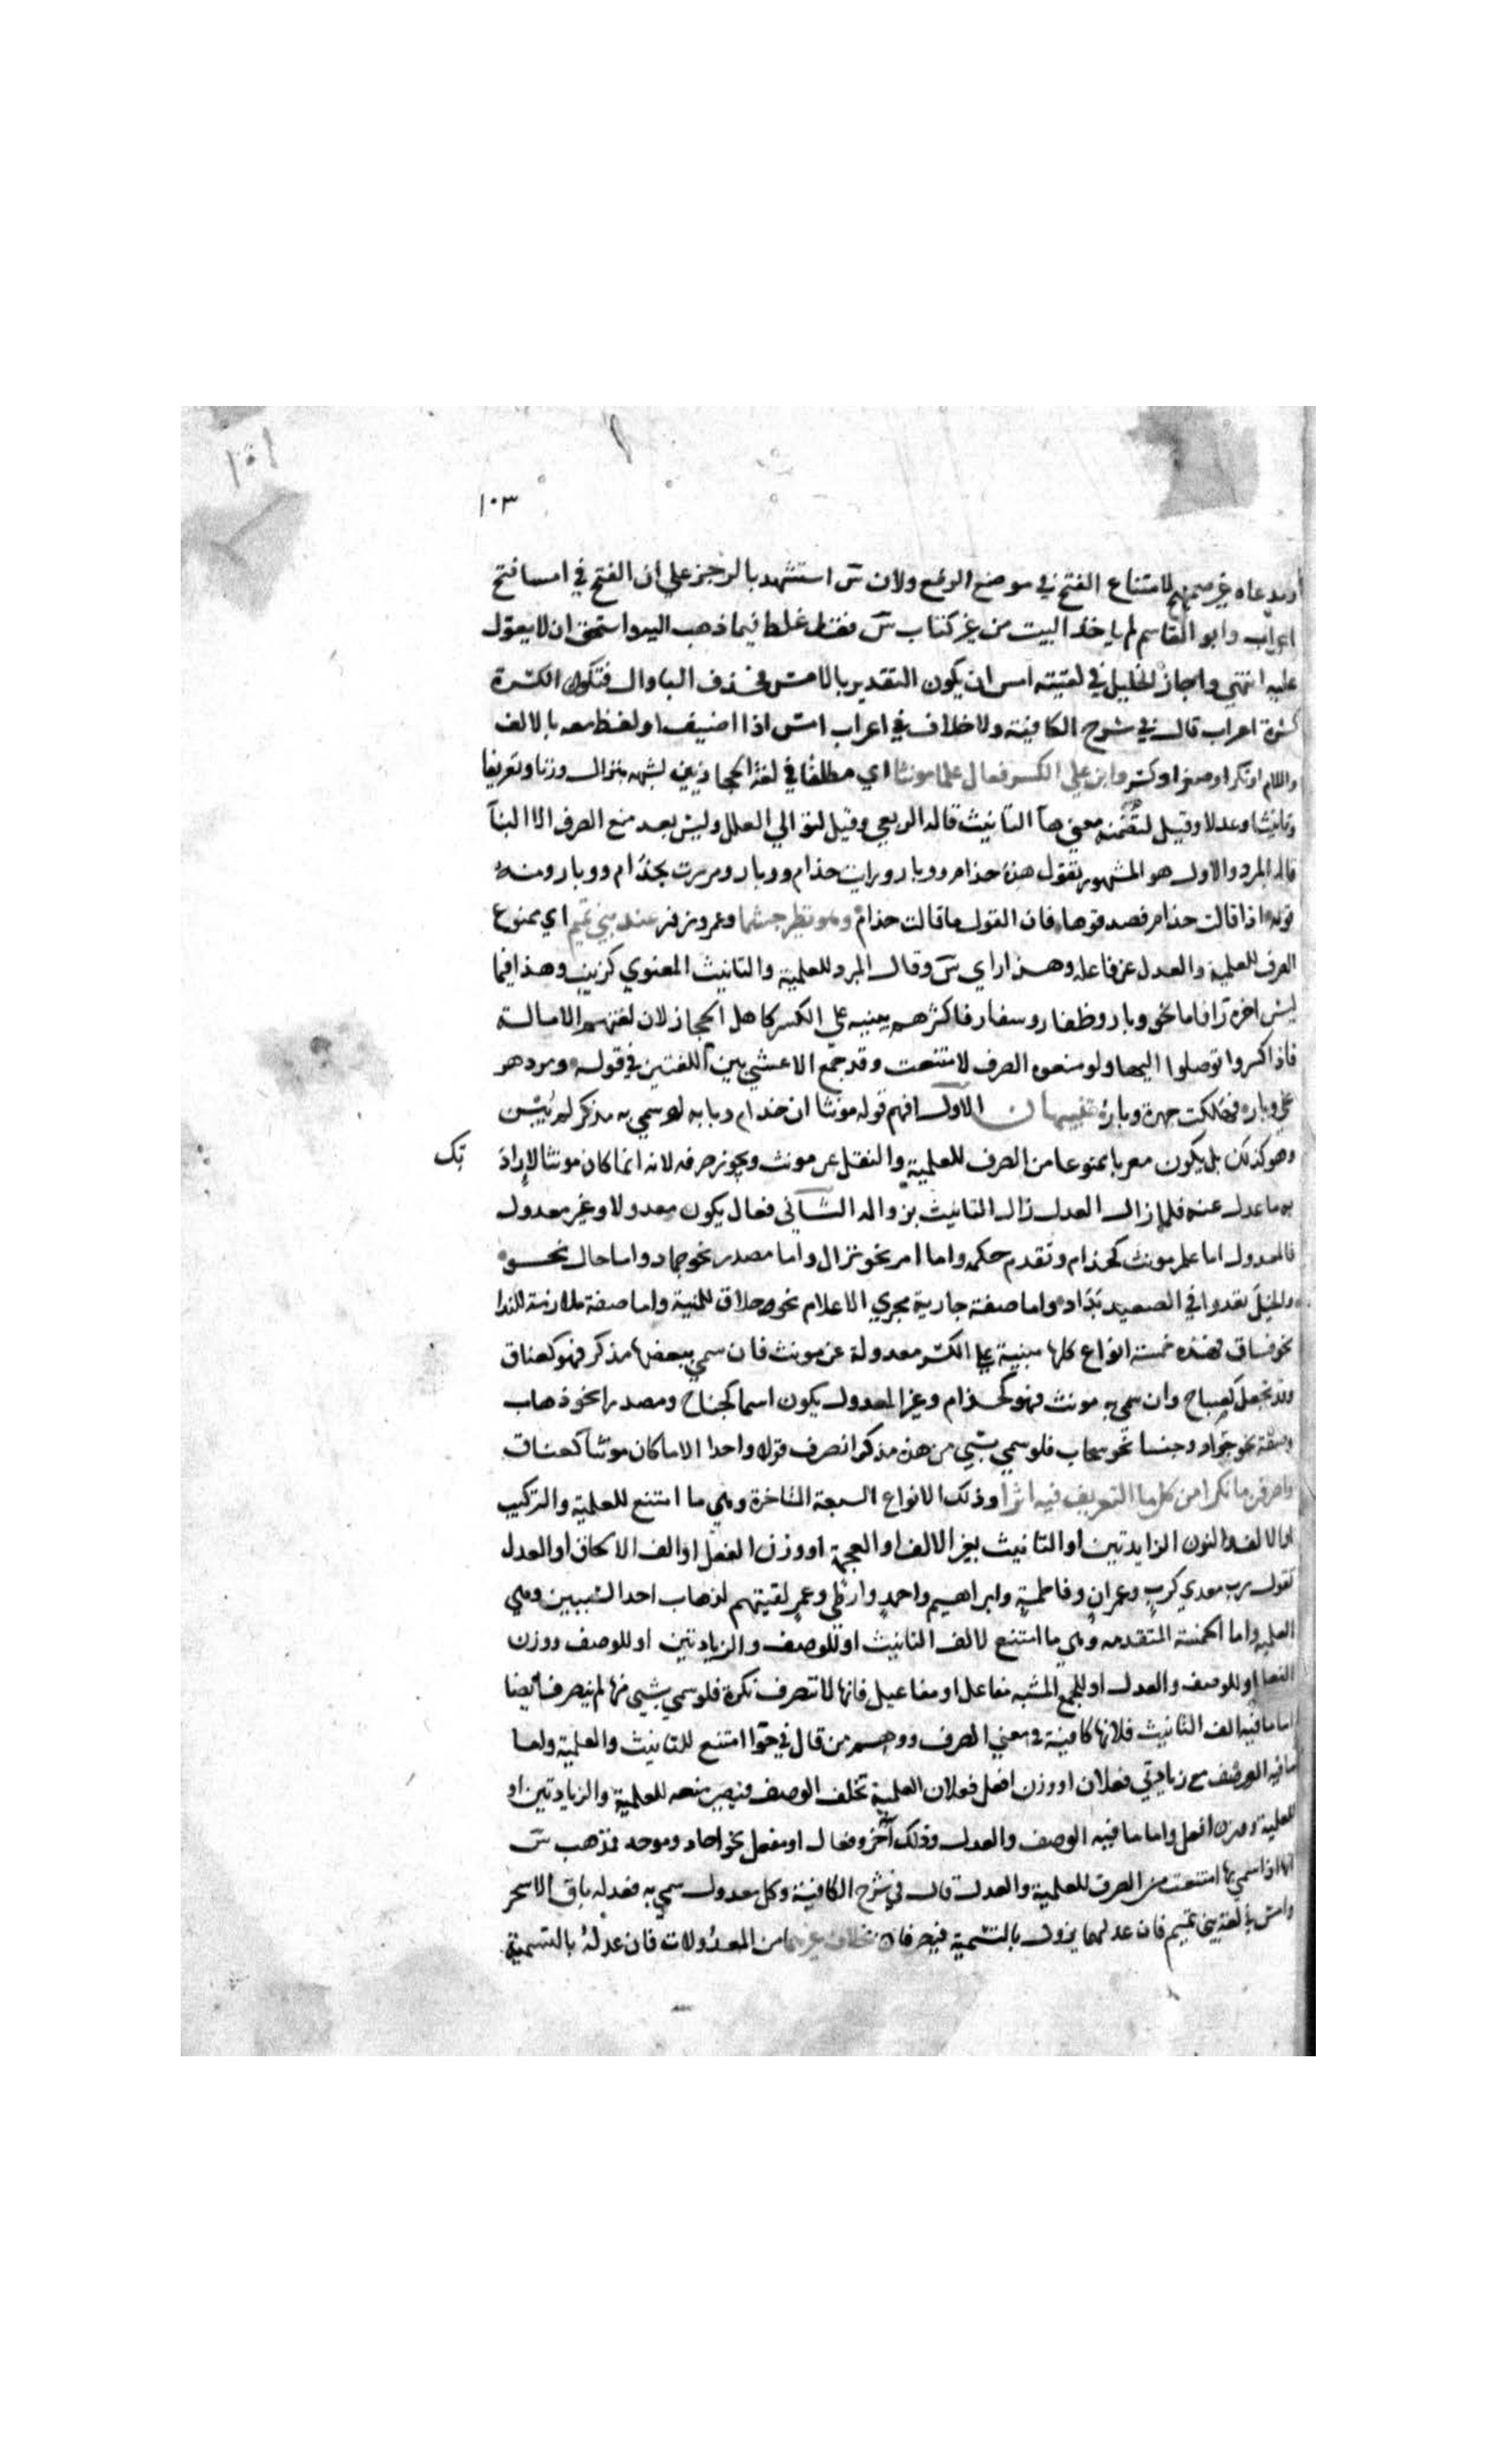 ١٠١
١٠٣
ومدعاه غير صحيح لامتناع الفتح في موضع الرفع ولان س استشهد بالرجز علي ان الفتح في امسا فتح
اعراب وابو القاسم لم ياخذ البيت من غير كتاب س فقد غلط فيما ذهب اليه واستحق ان لا يعول
عليه انتهي واجاز الخليل في لقيته امس ان يكون التقدير بالامس فحذف البا وال فتكون الكسرة
كسرة اعراب قال في شرح الكافية ولا خلاف في اعراب امس اذا اضيف او لفظ معه بالالف
واللام او نكر او صغر او كسر وابن علي الكسر فعال علما مونثا اي مطلقا في لغة الحجازيين لشبهه بنزال وزنا وتعريفا
وتانيثا وعدلا وقيل لتضمنه معني ها التانيث قاله الربعي وقيل لتوالي العلل وليس بعد منع الصرف الا البنا
قاله المبرد والاول هو المشهور تقول هذه حذام ووبار ورايت حذام ووبار ومررت بحذام ووبار ومنه
قوله اذا قالت حذام فصدقوها فان القول ما قالت حذام وهو نظير جشما وعمر وزفر عند بني تميم اي ممنوع
الصرف للعلمية والعدل عن فاعلة وهذا راي س وقال المبرد للعلمية والتانيث المعنوي كزينب وهذا فيما
ليس اخره را فاما نحو وبار وظفار وسفار فاكثرهم يبنيه علي الكسر كاهل الحجاز لان لغتهم الامالة
فاذا كسروا توصلوا اليها ولو منعوه الصرف لامتنعت وقد جمع الاعشي بين اللغتين في قوله ومر دهر
علي وبار فهلكت جهرة وبار تنبيهان الاول افهم قوله مونثا ان حذام وبابه لو سمي به مذكر لم يبن
وهو كذلك بل يكون معربا ممنوعا من الصرف للعلمية والنقل عن مونث ويجوز صرفه لانه انما كان مونثا لارادة
تك
به ما عدل عنه فلما زال العدل زال التانيث بزواله الثاني فعال يكون معدولا وغير معدول
فالمعدول اما علم مونث كحذام وتقدم حكمه واما امر نحو نزال واما مصدر نحو حماد واما حال نحو
والخيل تعدوا في الصعيد بداد واما صفة جارية مجري الاعلام نحو حلاق للمنية واما صفة ملازمة للندا
نحو فساق فهذه خمسة انواع كلها مبنية علي الكسر معدولة عن مونث فان سمي ببعضها مذكر فهو كعناق
وقد يجعل كصباح وان سمي به مونث فهو كحذام وغير المعدول يكون اسما كجناح ومصدرا نحو ذهاب
وصفة نحو جواد وجنسا نحو سحاب فلو سمي بشي من هذه مذكر انصرف قولا واحدا الا ما كان مونثا كعناق
واصرفن ما نكرا من كل ما التعريف فيه اثرا وذلك الانواع السبعة المتاخرة وهي ما امتنع للعلمية والتركيب
او الالف والنون الزايدتين او التانيث بغير الالف او العجمة او وزن الفعل او الف الالحاق او العدل
تقول رب معدي كرب وعمران وفاطمة وابراهيم واحمد وارطي وعمر لقيتهم لذهاب احد السببين وهي
العلمية واما الخمسة المتقدمه وهي ما امتنع لالف التانيث او للوصف والزيادتين او للوصف ووزن
الفعل او للوصف والعدل او للجمع المشبه مفاعل او مفاعيل فانها لا تصرف نكرة فلو سمي بشي منها لم ينصرف ايضا
اما ما فيه الف التانيث فلانها كافية في معني الصرف ووهم من قال في حوا امتنع للتانيث والعلمية واما
ما فيه الوصف مع زيادتي فعلان او وزن افعل فلان العلمية تخلف الوصف فيصير منعه للعلمية والزيادتين او
للعلمية ووزن افعل واما ما فيه الوصف والعدل وذلك اخر وفعال او مفعل نحو احاد وموحد فمذهب س
انها اذا سمي بها امتنعت من الصرف للعلمية والعدل قال في شرح الكافية وكل معدول سمي به فعدله باق الا سحر
وامس في لغة بني تميم فان عدلهما يزول بالتسمية فيصرفان بخلاف غيرهما من المعدولات فان عدله بالتسمية